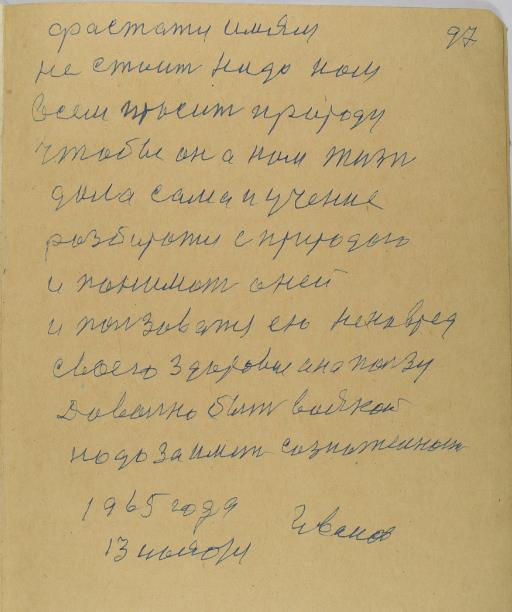 97
фрастати имям
не стоит надо нам
всем просит природу
чтобы она нам жизт
дала сама и учение
розбиратися с природою
и понимат оней
и ползоватя ею не навред
своего здоровия а на ползу
Доволно быт войной
надо займат сознателност
1965 года
13 ноября Иванов